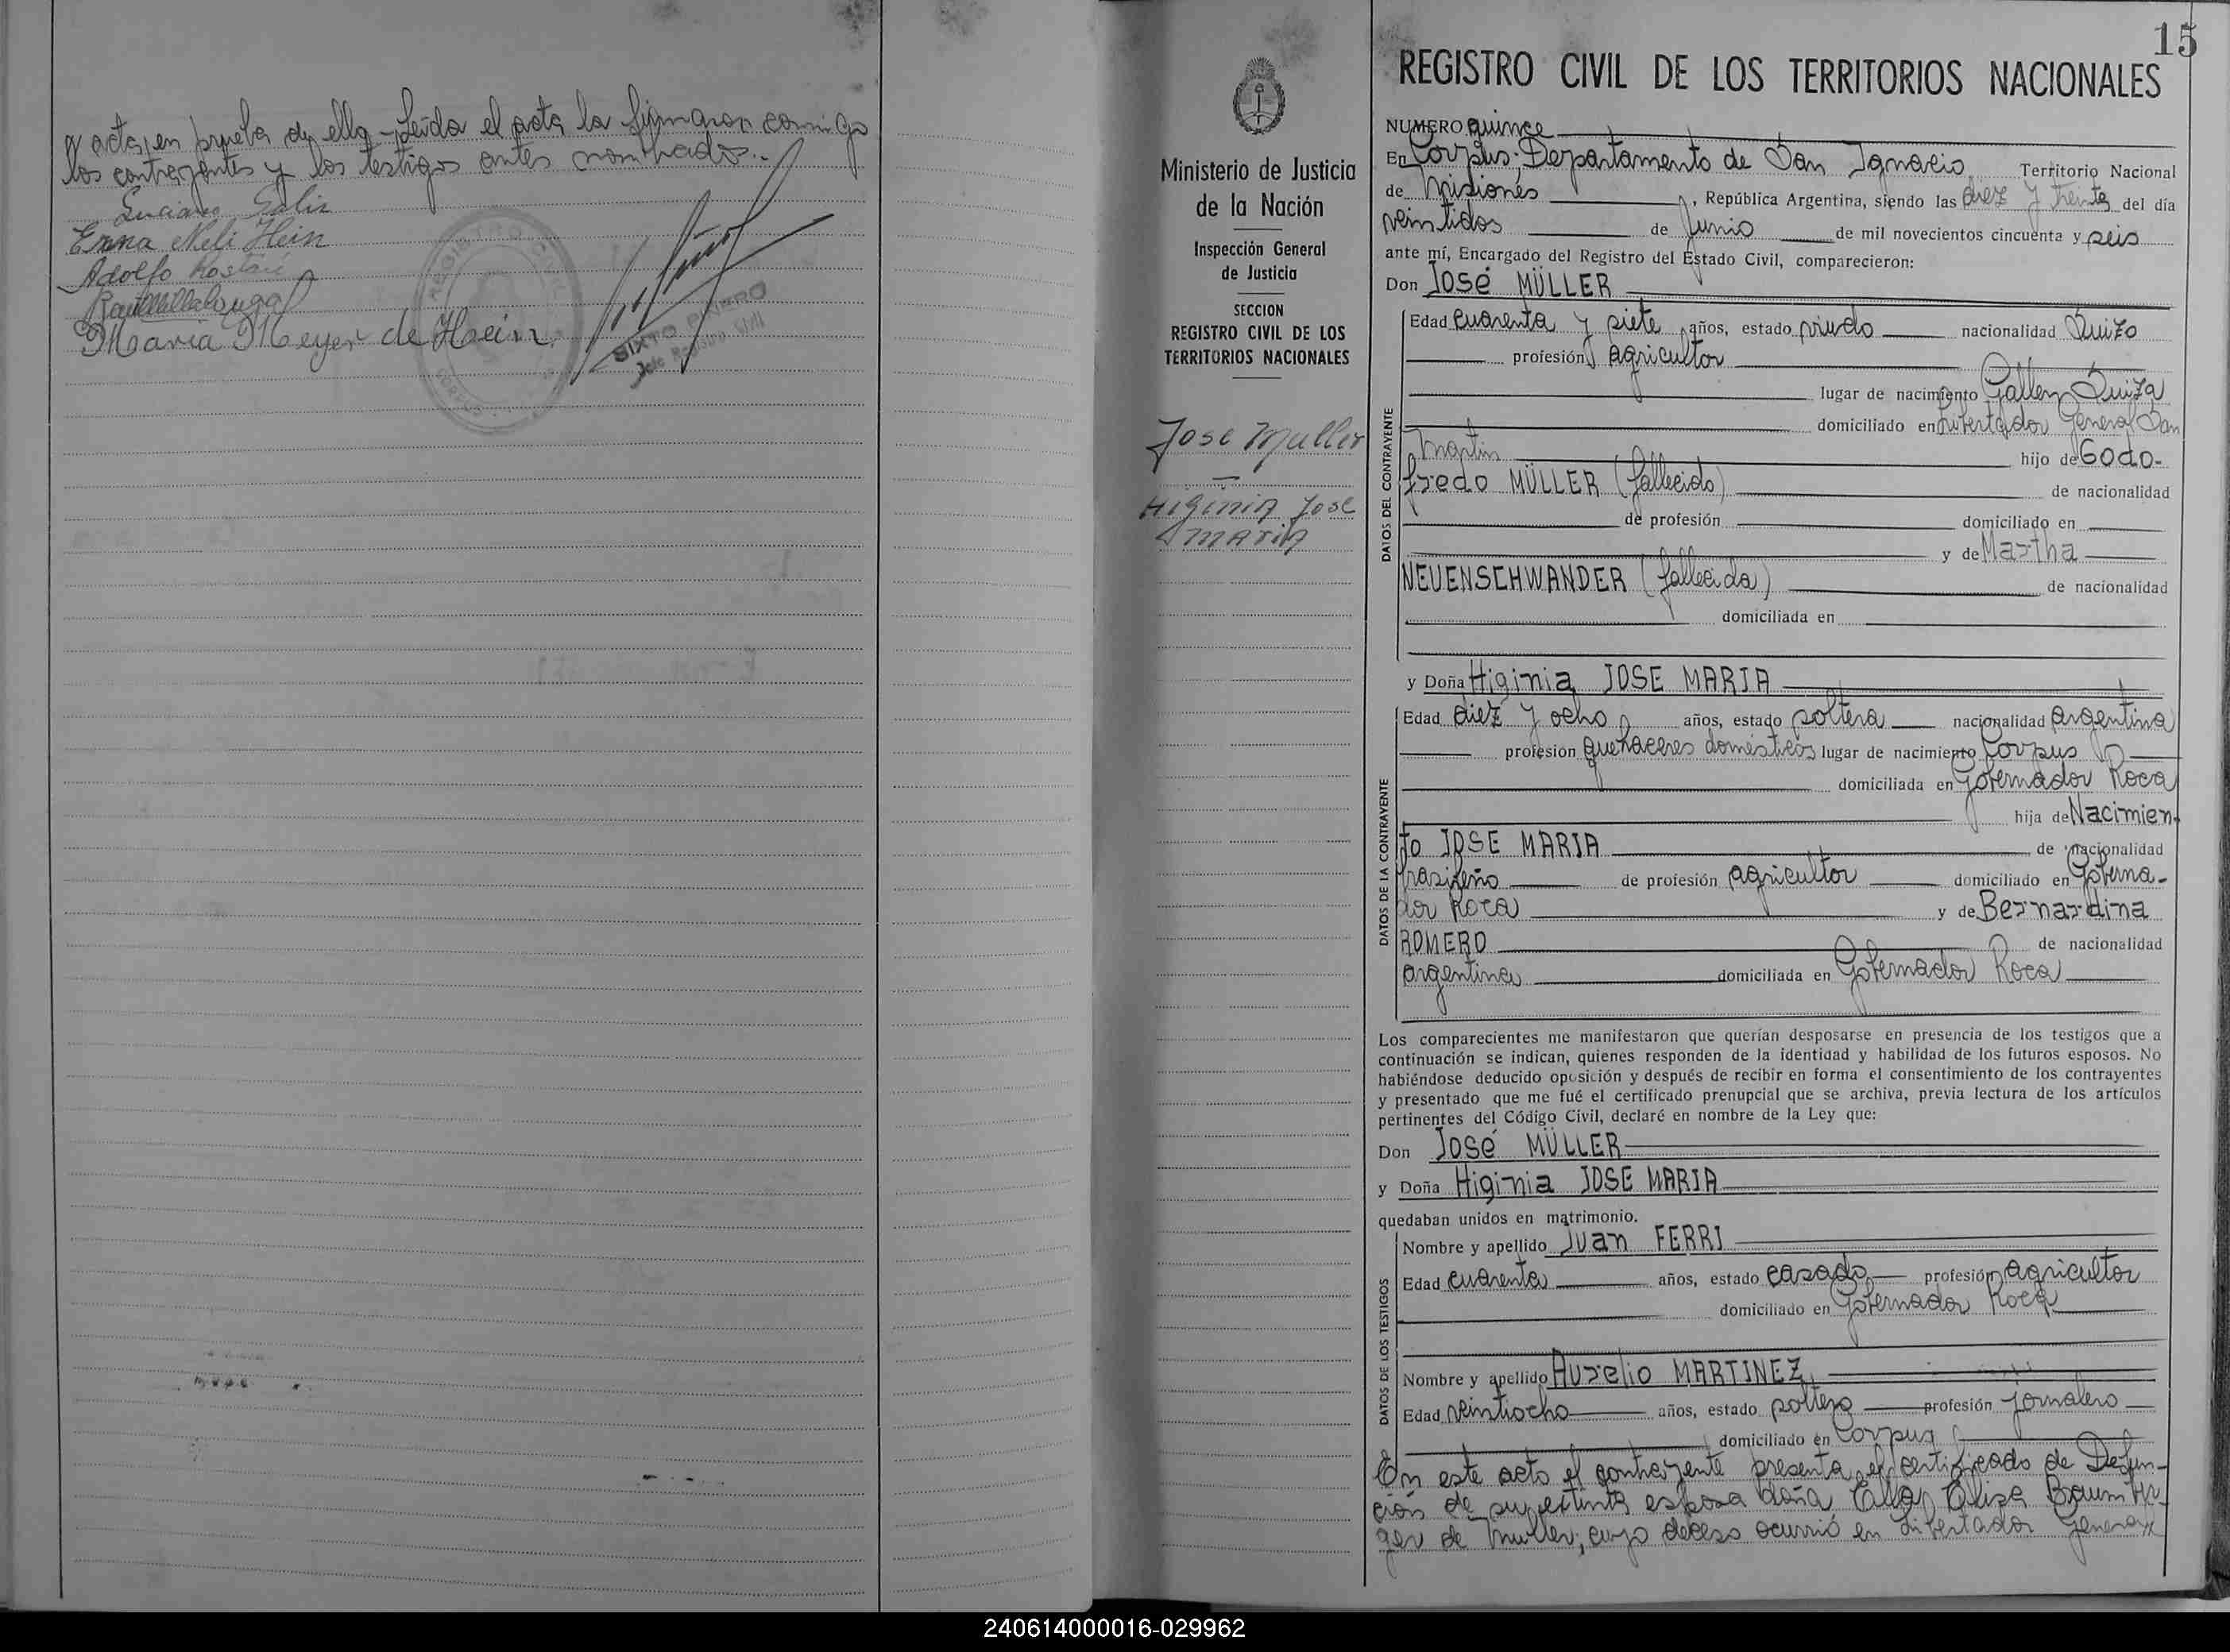 y acta, en prueba de ello - Leída el acta la firmaron conmigo
los contrayentes y los testigos antes nombrados.-
Luciano Galis
Erna Neli Hein
Adolfo
Raul Villalonga
Maria Meyer de Hein
REGISTRO CIVIL
CORPUS
SIXTO PIÑERO
Jefe Registro Civil
Ministerio de Justicia
de la Nación
Inspección General
de Justicia
SECCION
REGISTRO CIVIL DE LOS
TERRITORIOS NACIONALES
Jose Muller
Higinia Jose
Maria
15
REGISTRO CIVIL DE LOS TERRITORIOS NACIONALES
NUMERO quince
En Corpus; Departamento de San Ignacio Territorio Nacional
de Misiones, República Argentina, siendo las diez y treinta del día
veintidos de Junio de mil novecientos cincuenta y seis
ante mí, Encargado del Registro del Estado Civil, comparecieron:
Don José MÜLLER
DATOS DEL CONTRAYENTE
Edad cuarenta y siete años, estado viudo nacionalidad Suizo
profesión agricultor
lugar de nacimiento Gallen Suiza
domiciliado en Libertador General San
Martin hijo de Godo-
fredo MÜLLER (fallecido) de nacionalidad
de profesión domiciliado en
y de Martha
NEUENSCHWANDER (fallecida) de nacionalidad
domiciliada en
y Doña Higinia JOSE MARIA
DATOS DE LA CONTRAYENTE
Edad diez y ocho años, estado soltera nacionalidad argentina
profesion quehaceres domésticos lugar de nacimiento Corpus
domiciliada en Gobernador Roca
hija de Nacimien-
to JOSE MARIA de nacionalidad
brasileño de profesión agricultor domiciliado en Goberna-
dor Roca y de Bernardina
ROMERO de nacionalidad
argentina domiciliada en Gobernador Roca
Los comparecientes me manifestaron que querían desposarse en presencia de los testigos que a
continuación se indican, quienes responden de la identidad y habilidad de los futuros esposos. No
habiéndose deducido oposición y después de recibir en forma el consentimiento de los contrayentes
y presentado que me fué el certificado prenupcial que se archiva, previa lectura de los artículos
pertinentes del Código Civil, declaré en nombre de la Ley que:
Don José MÜLLER
y Doña Higinia JOSE MARIA
quedaban unidos en matrimonio.
DATOS DE LOS TESTIGOS
Nombre y apellido Juan FERRI
Edad cuarenta años, estado casado profesión agricultor
domiciliado en Gobernador Roca
Nombre y apellido Aurelio MARTINEZ
Edad veintiocho años, estado soltero profesión jornalero
domiciliado en Corpus
En este acto el contrayente presenta el certificado de Defun-
ción de su extinta esposa doña Elisa
de Muller; cuyo deceso ocurrió en Libertador General
240614000016-029962